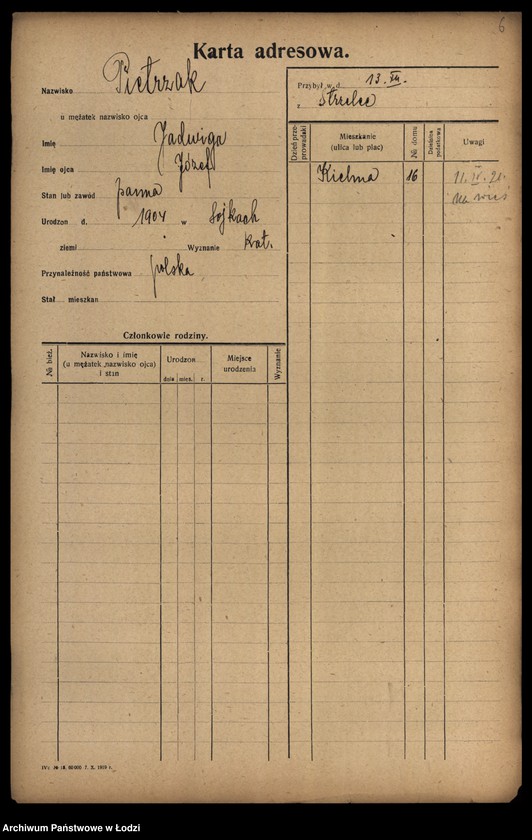 6
Karta adresowa.
Nazwisko Pietrzak
u mężatek nazwisko ojca
Imię Jadwiga
Imię ojca Józef
Stan lub zawód panna
Urodzon d. 1904 w Sójkach
ziemi Wyznanie kat.
Przynależność państwowa polska
Stał mieszkan
Członkowie rodziny.
№ bież.
Nazwisko i imię
(u mężatek nazwisko ojca)
i stan
Urodzon
dnia mies. r.
Miejsce
urodzenia
Wyznanie
Przybył w d. 13. XII.
z Strzelce
Dzień przeprowadzki
Mieszkanie
(ulica lub plac)
№ domu
Dzielnica
podatkowa
Uwagi
Kielma 16 11. IV. 21.
na wieś
Archiwum Państwowe w Łodzi